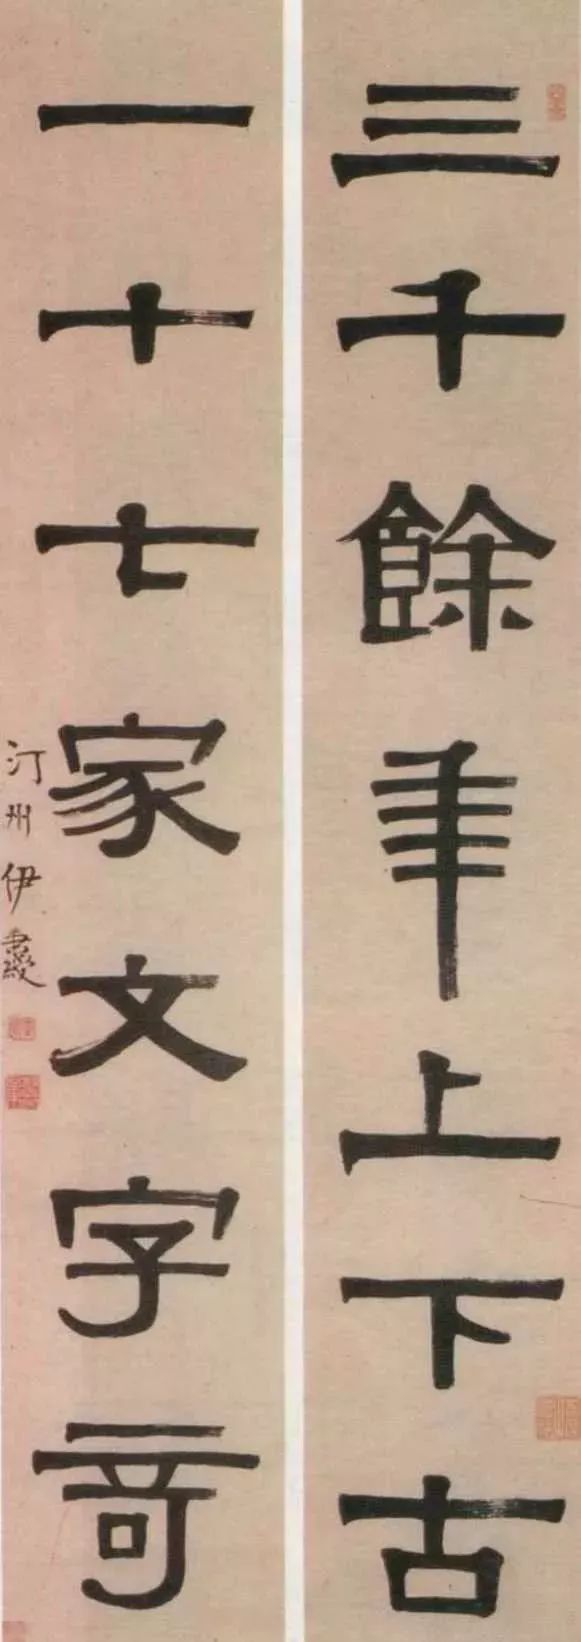 三千餘年上下古
一十七家文字竒
汀州伊秉綬